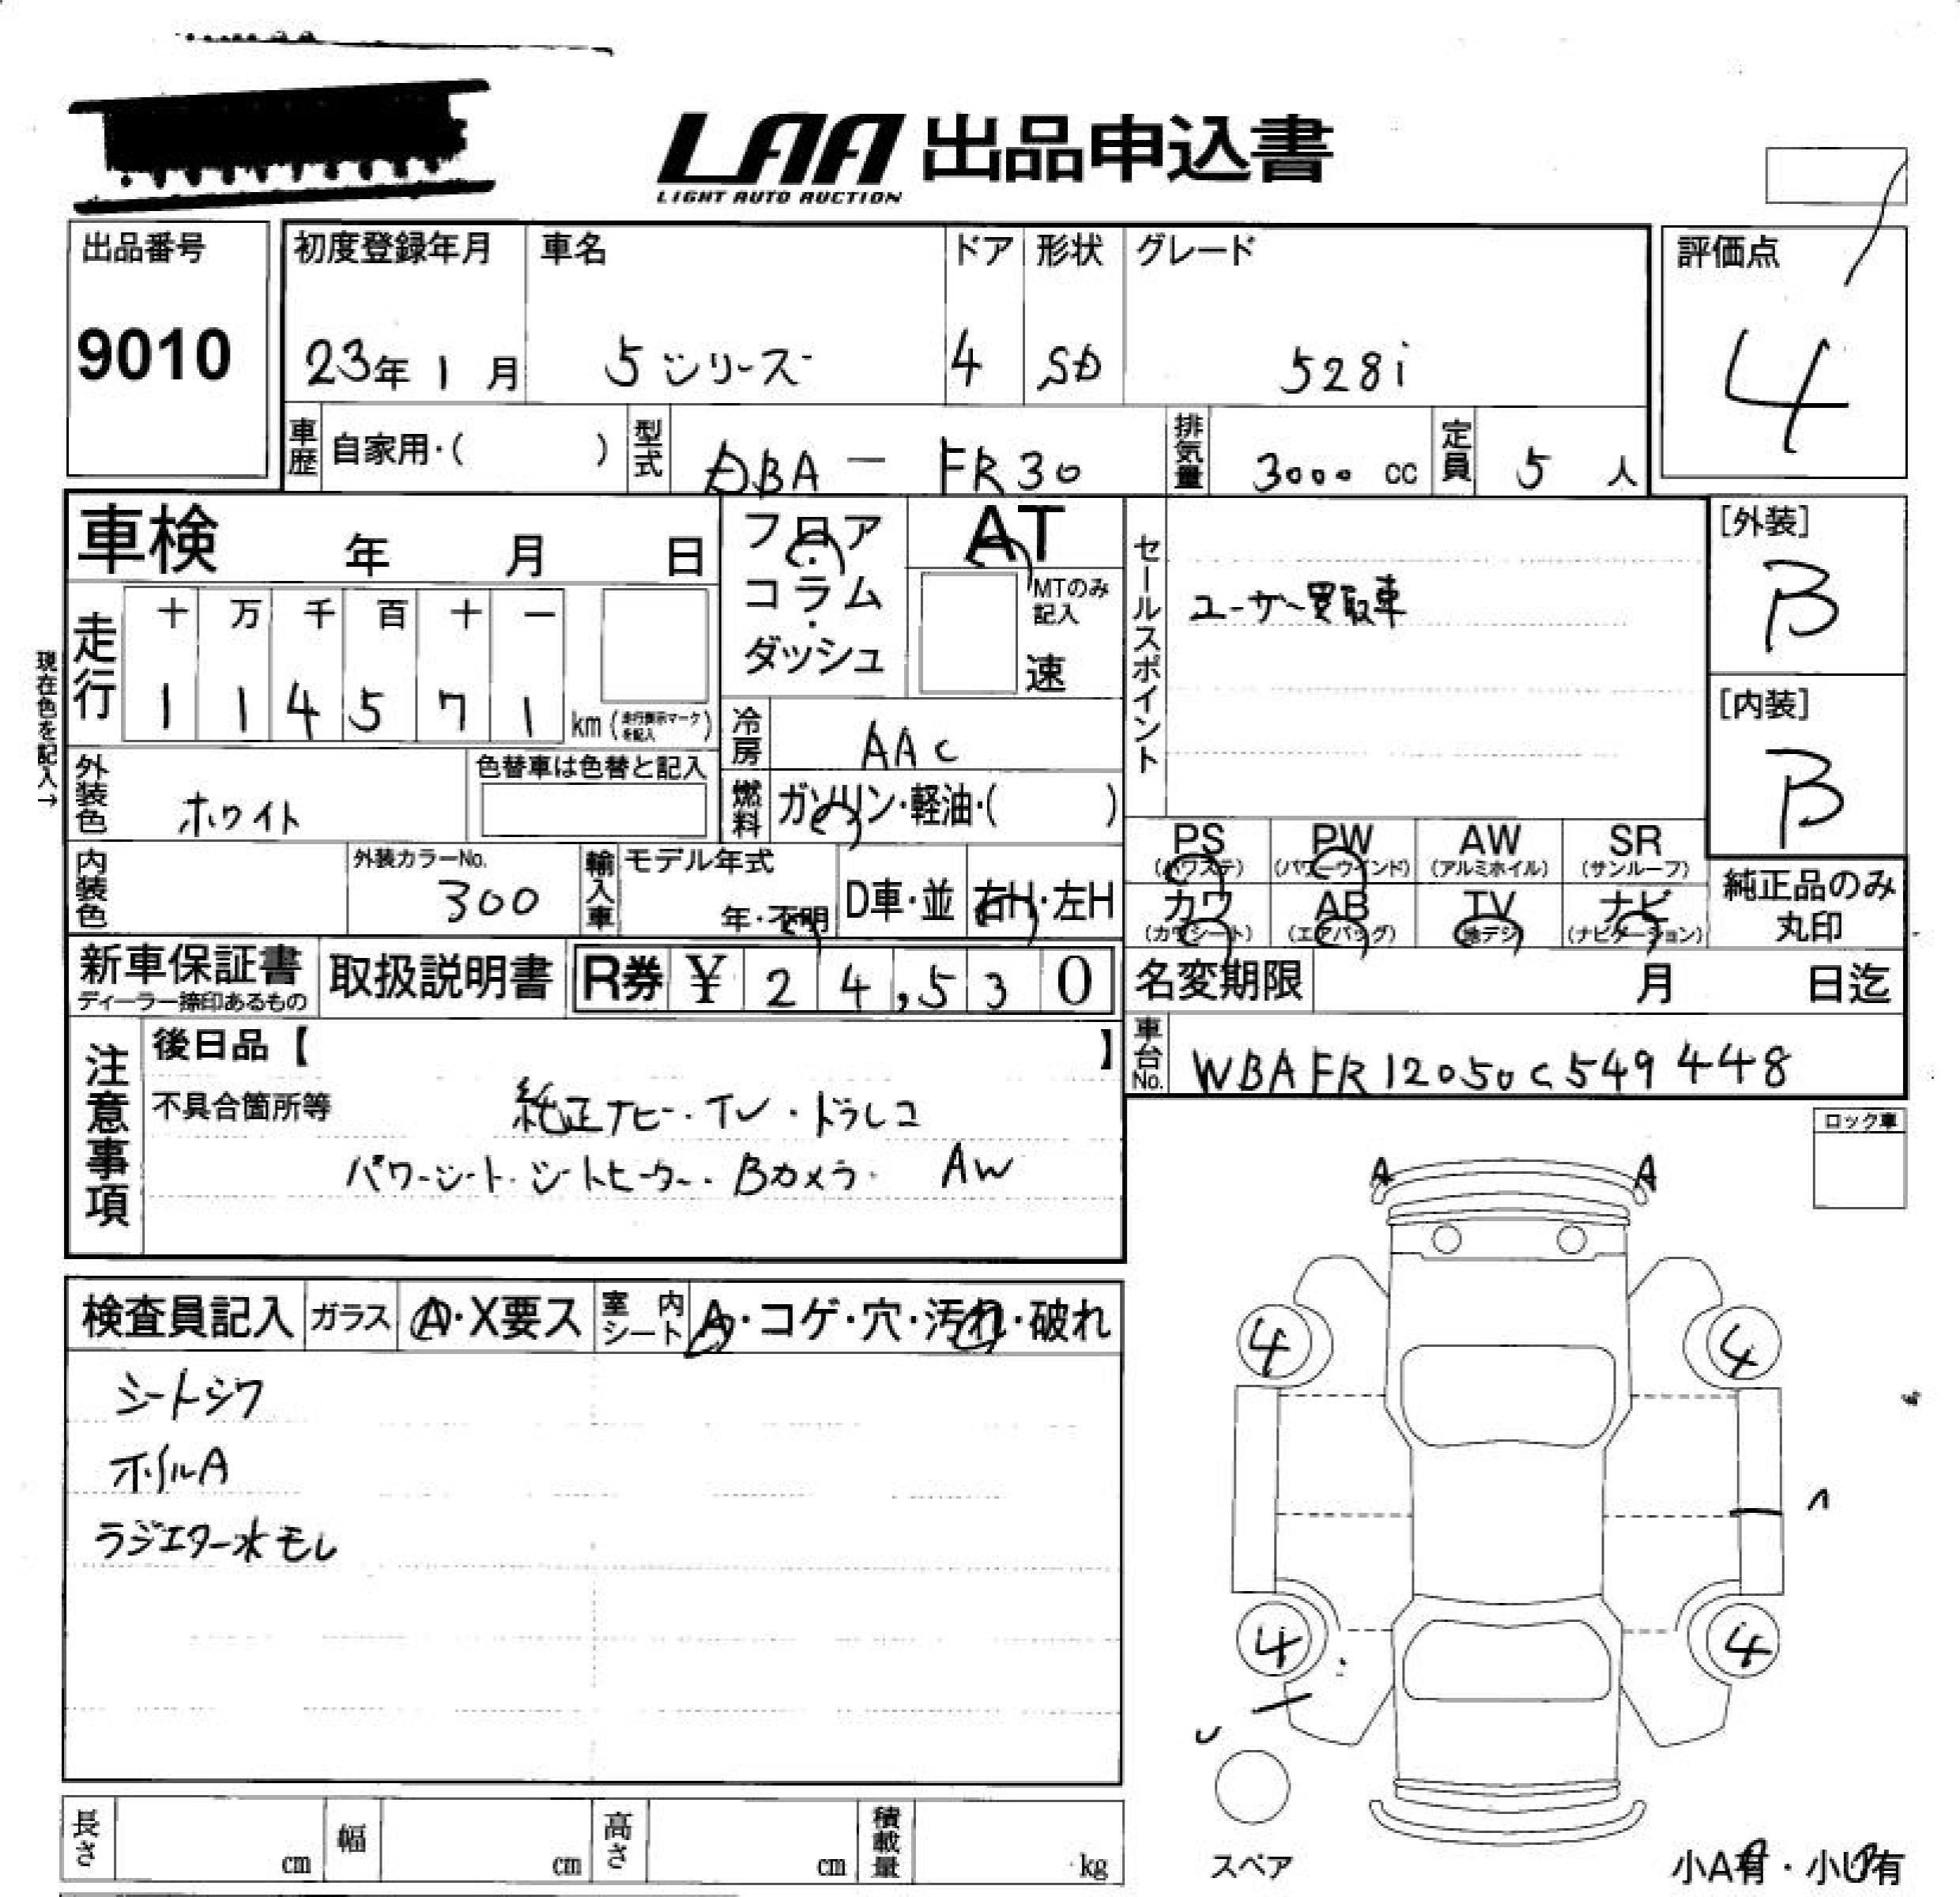 LAA 出品申込書
LIGHT AUTO AUCTION
出品番号
9010
初度登録年月
23年 1月
車名
5シリーズ
ドア
4
形状
SD
グレード
528i
評価点
4
車歴
自家用・( )
型式
DBA - FR30
排気量
3000 cc
定員
5 人
車検 年 月 日
フロア・コラム・ダッシュ
AT
MTのみ記入
速
セールスポイント
ユーザー買取車
[外装]
B
[内装]
B
現在色を記入→
走行
十 万 千 百 十 一
1 1 4 5 7 1 km (走行表示マークを記入)
冷房
AAC
外装色
ホワイト
色替車は色替と記入
燃料
ガソリン・軽油・( )
PS (パワステ)
PW (パワーウインド)
AW (アルミホイル)
SR (サンルーフ)
内装色
外装カラーNo.
300
輸入車
モデル年式
年・不明
D車・並
右H・左H
カワ (カワシート)
AB (エアバッグ)
TV (地デジ)
ナビ (ナビゲーション)
純正品のみ丸印
新車保証書
ディーラー捺印あるもの
取扱説明書
R券 ¥ 24,530
名変期限 月 日迄
車台No.
WBAFR12050C549448
注意事項
後日品【 】
不具合箇所等
純正ナビ・TV・ドラレコ
パワーシート・シートヒーター・Bカメラ・ AW
ロック車
A A
検査員記入
ガラス
A・X要ス
室内シート
A・コゲ・穴・汚れ・破れ
シートシワ
ホイルA
ラジエター水モレ
4 4
4 4
スペア
小A有・小U有
長さ cm
幅 cm
高さ cm
積載量 kg